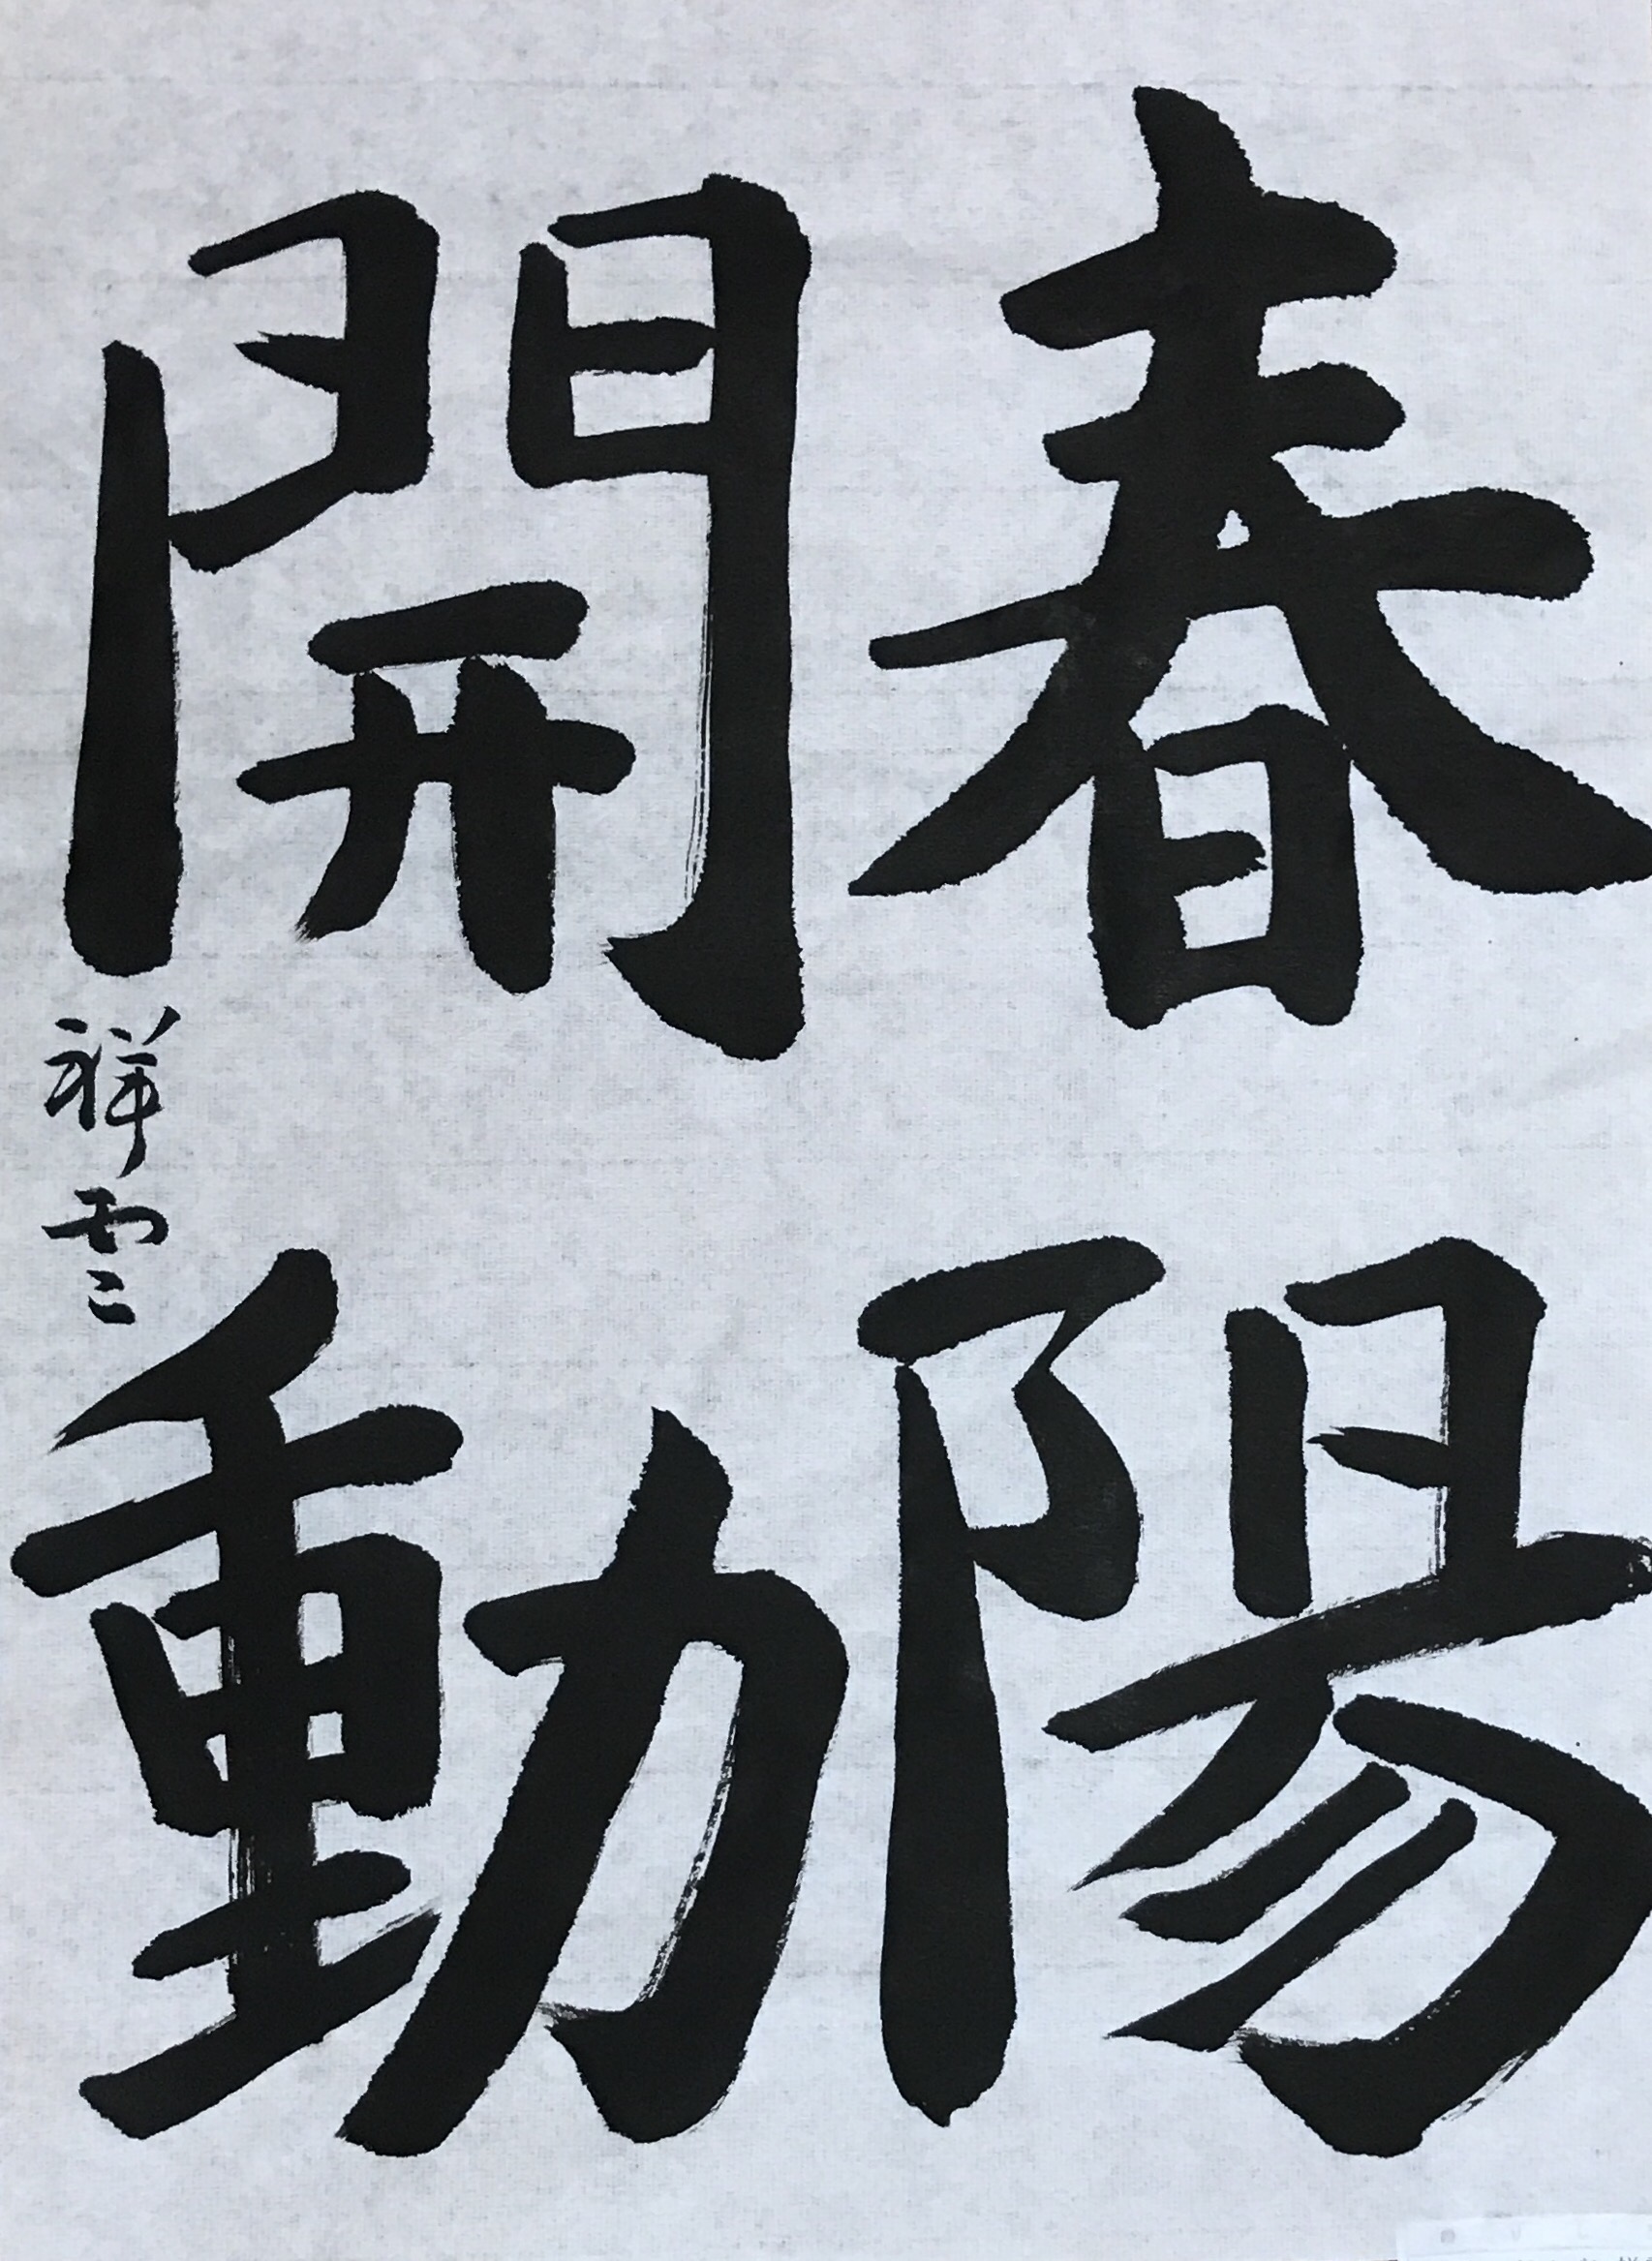 春陽
開動
祥雲